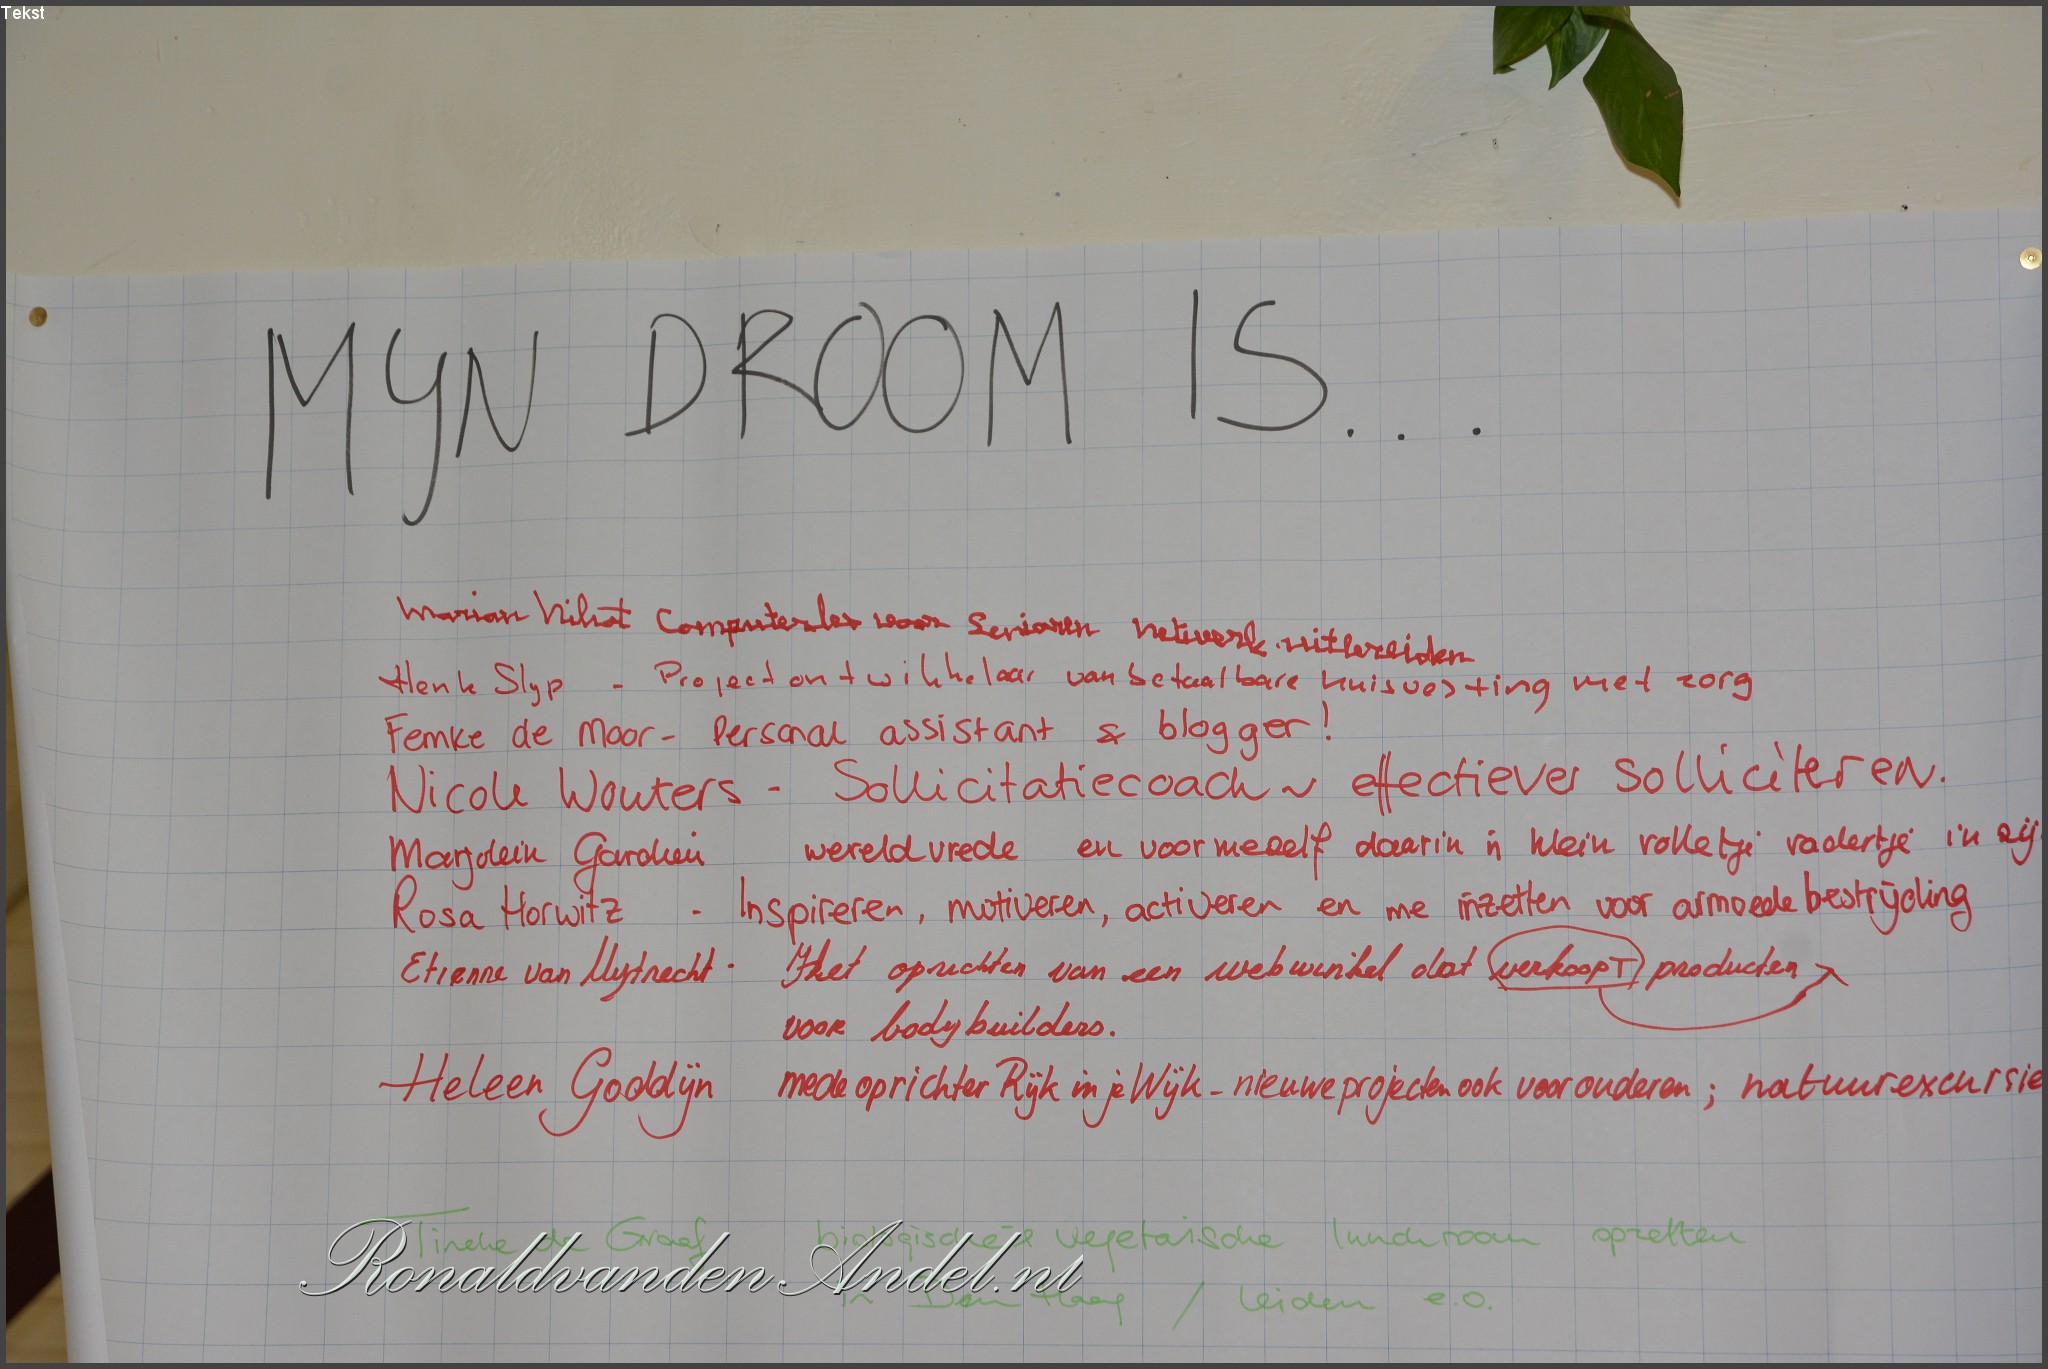 Tekst
MYN DROOM IS...
Marian Computerles voor Senioren netwerk uitbreiden
Henk Slyp - Projectontwikkelaar van betaalbare huisvesting met zorg
Femke de Moor - Personal assistant & blogger!
Nicole Wouters - Sollicitatiecoach ~ effectiever solliciteren.
Marjolein wereldvrede en voor mezelf daarin 'n klein rolletje radertje in
Rosa Horwitz - Inspireren, motiveren, activeren en me inzetten voor armoedebestrijding
Etienne van Mytrecht - Het oprichten van een webwinkel dat verkoopt producten
voor bodybuilders.
Heleen Goddijn medeoprichter Rijk in je Wijk - nieuwe projecten ook voor ouderen; natuurexcursie
Tineke de Graaf biologische vegetarische lunchroom opzetten
RonaldvandenAndel.nl
in Den Haag / Leiden e.o.